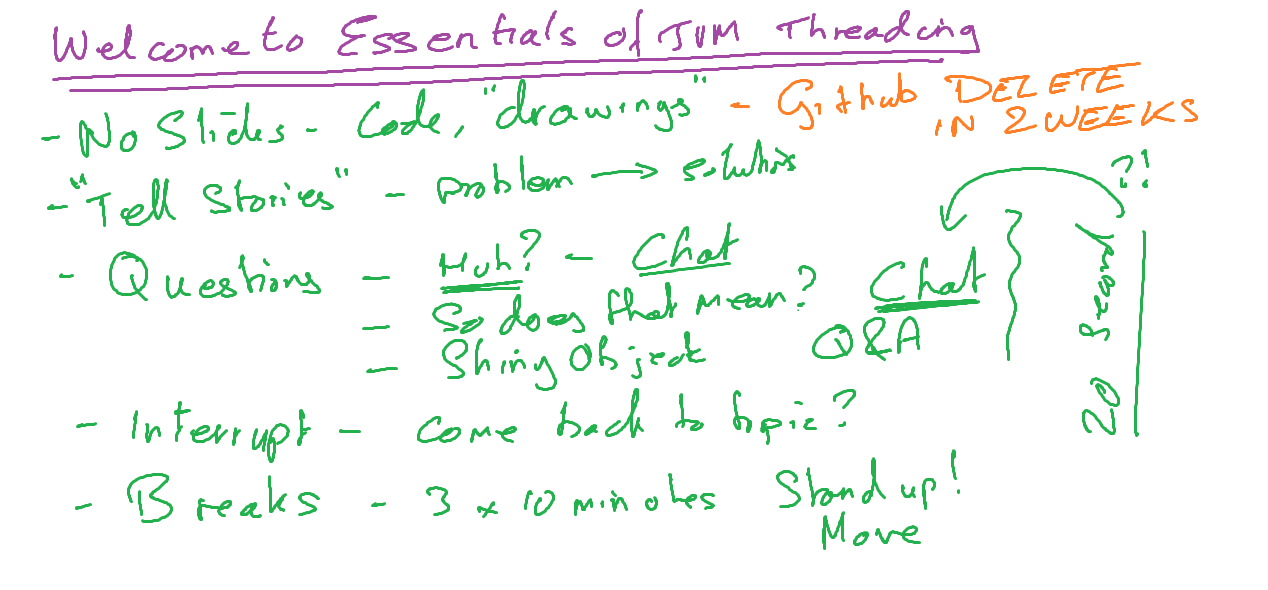 Welcome to Essentials of JVM Threading
- No Slides - Code, "drawings" - Github DELETE IN 2 WEEKS
- "Tell Stories" - problem → solutions
- Questions - Huh? - Chat
- So does that mean? Chat
- Shiny Object Q&A
20 second ?!
- Interrupt - come back to topic?
- Breaks - 3 x 10 minutes Stand up!
Move